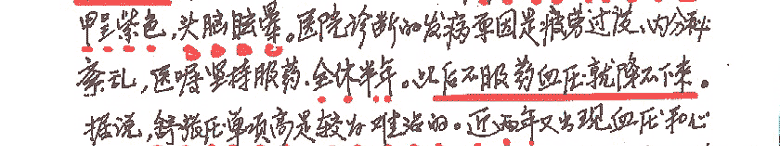 甲呈紫色，头脑眩晕。医院诊断的发病原因是疲劳过度、内分秘
紊乱，医嘱坚持服药.全休半年。此后不服药血压就降不下来。
据说，舒张压单项高是较为难治的。近两年又出现血压和心